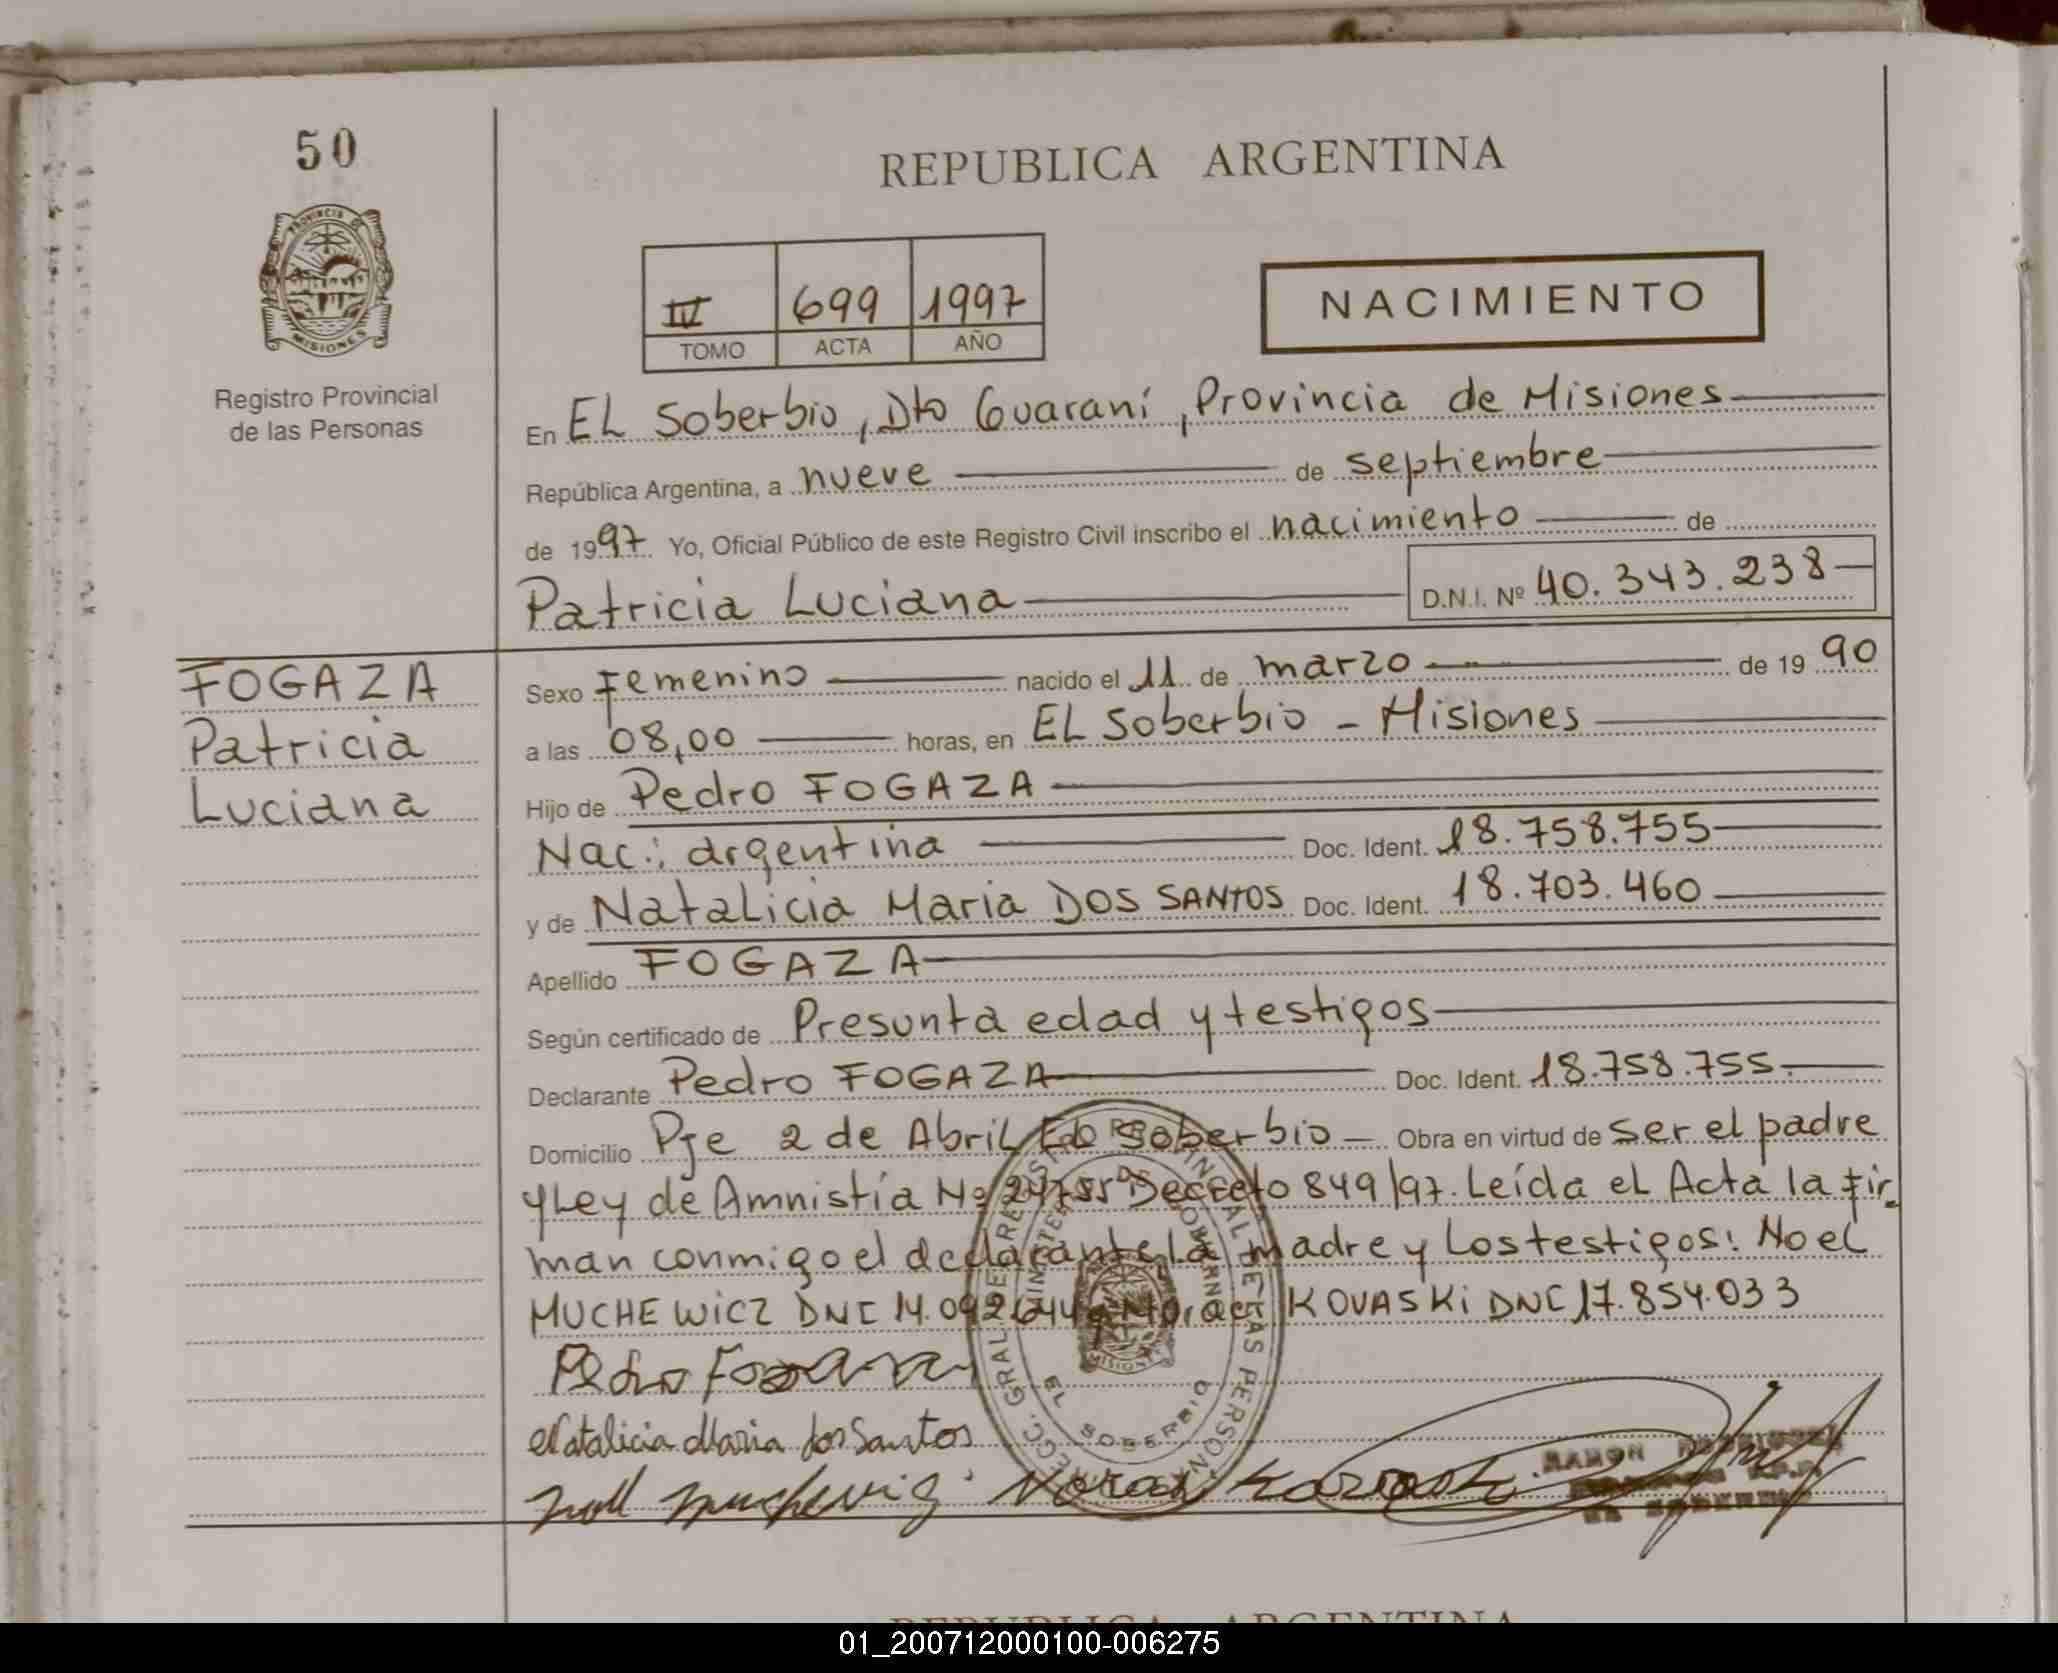 50
REPUBLICA ARGENTINA
PROVINCIA DE
MISIONES
Registro Provincial
de las Personas
IV 699 1997
TOMO ACTA AÑO
NACIMIENTO
En EL Soberbio, Dto Guaraní, Provincia de Misiones
República Argentina, a nueve de septiembre
de 1997 Yo, Oficial Público de este Registro Civil inscribo el nacimiento de
Patricia Luciana D.N.I. Nº 40.343.238
FOGAZA
Patricia
Luciana
Sexo Femenino nacido el 11 de marzo de 1990
a las 08,00 horas, en EL Soberbio - Misiones
Hijo de Pedro FOGAZA
Nac.: argentina Doc. Ident. 18.758.755
y de Natalicia Maria DOS SANTOS Doc. Ident. 18.703.460
Apellido FOGAZA
Según certificado de Presunta edad y testigos
Declarante Pedro FOGAZA Doc. Ident. 18.758.755.
Domicilio Pje 2 de Abril El Soberbio Obra en virtud de ser el padre
y Ley de Amnistía Nº 24755 Decreto 849/97. Leída el Acta la fir
man conmigo el declarante, la madre y los testigos: Noel
MUCHEWICZ DNI 14.092644 y KOVASKI DNI 17.854.033
Pedro Fogaza
Natalicia Maria dos Santos
EL SOBERBIO
MISIONES
RAMON
01_200712000100-006275
REPUBLICA ARGENTINA